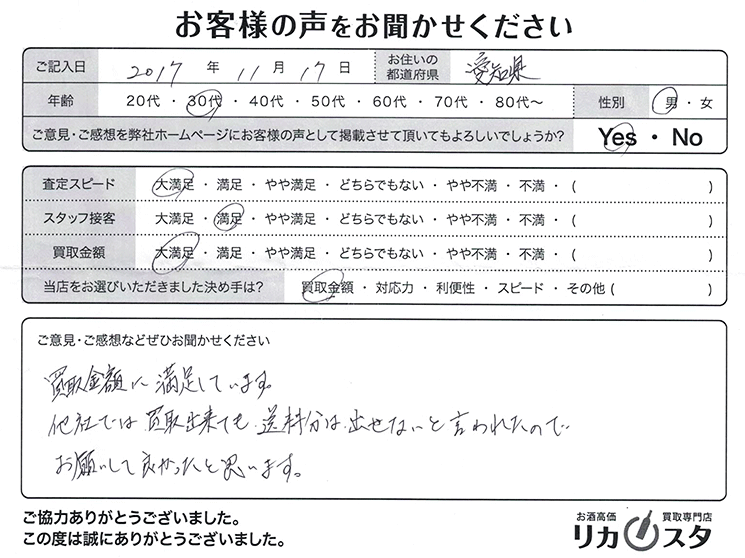 お客様の声をお聞かせください
ご記入日 2017 年 11 月 17 日 お住いの都道府県 愛知県
年齢 20代 ・ 30代 ・ 40代 ・ 50代 ・ 60代 ・ 70代 ・ 80代〜 性別 男 ・ 女
ご意見・ご感想を弊社ホームページにお客様の声として掲載させて頂いてもよろしいでしょうか? Yes ・ No
査定スピード 大満足 ・ 満足 ・ やや満足 ・ どちらでもない ・ やや不満 ・ 不満 ・ ( )
スタッフ接客 大満足 ・ 満足 ・ やや満足 ・ どちらでもない ・ やや不満 ・ 不満 ・ ( )
買取金額 大満足 ・ 満足 ・ やや満足 ・ どちらでもない ・ やや不満 ・ 不満 ・ ( )
当店をお選びいただきました決め手は? 買取金額 ・ 対応力 ・ 利便性 ・ スピード ・ その他 ( )
ご意見・ご感想などぜひお聞かせください
買取金額に満足しています。
他社では買取出来ても、送料分は出せないと言われたので
お願いして良かったと思います。
ご協力ありがとうございました。
この度は誠にありがとうございました。
お酒高価 買取専門店
リカスタ